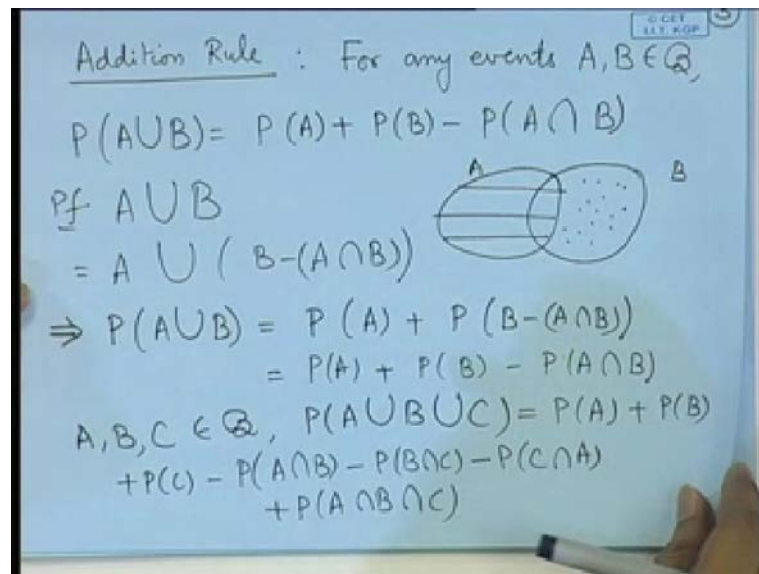 © CET
I.I.T. KGP
3
Addition Rule : For any events A, B ∈ ℬ,
P(A∪B) = P(A) + P(B) − P(A∩B)
A B
Pf A∪B
= A ∪ (B−(A∩B))
⇒ P(A∪B) = P(A) + P(B−(A∩B))
= P(A) + P(B) − P(A∩B)
A, B, C ∈ ℬ, P(A∪B∪C) = P(A) + P(B)
+P(C) − P(A∩B) − P(B∩C) − P(C∩A)
+P(A∩B∩C)